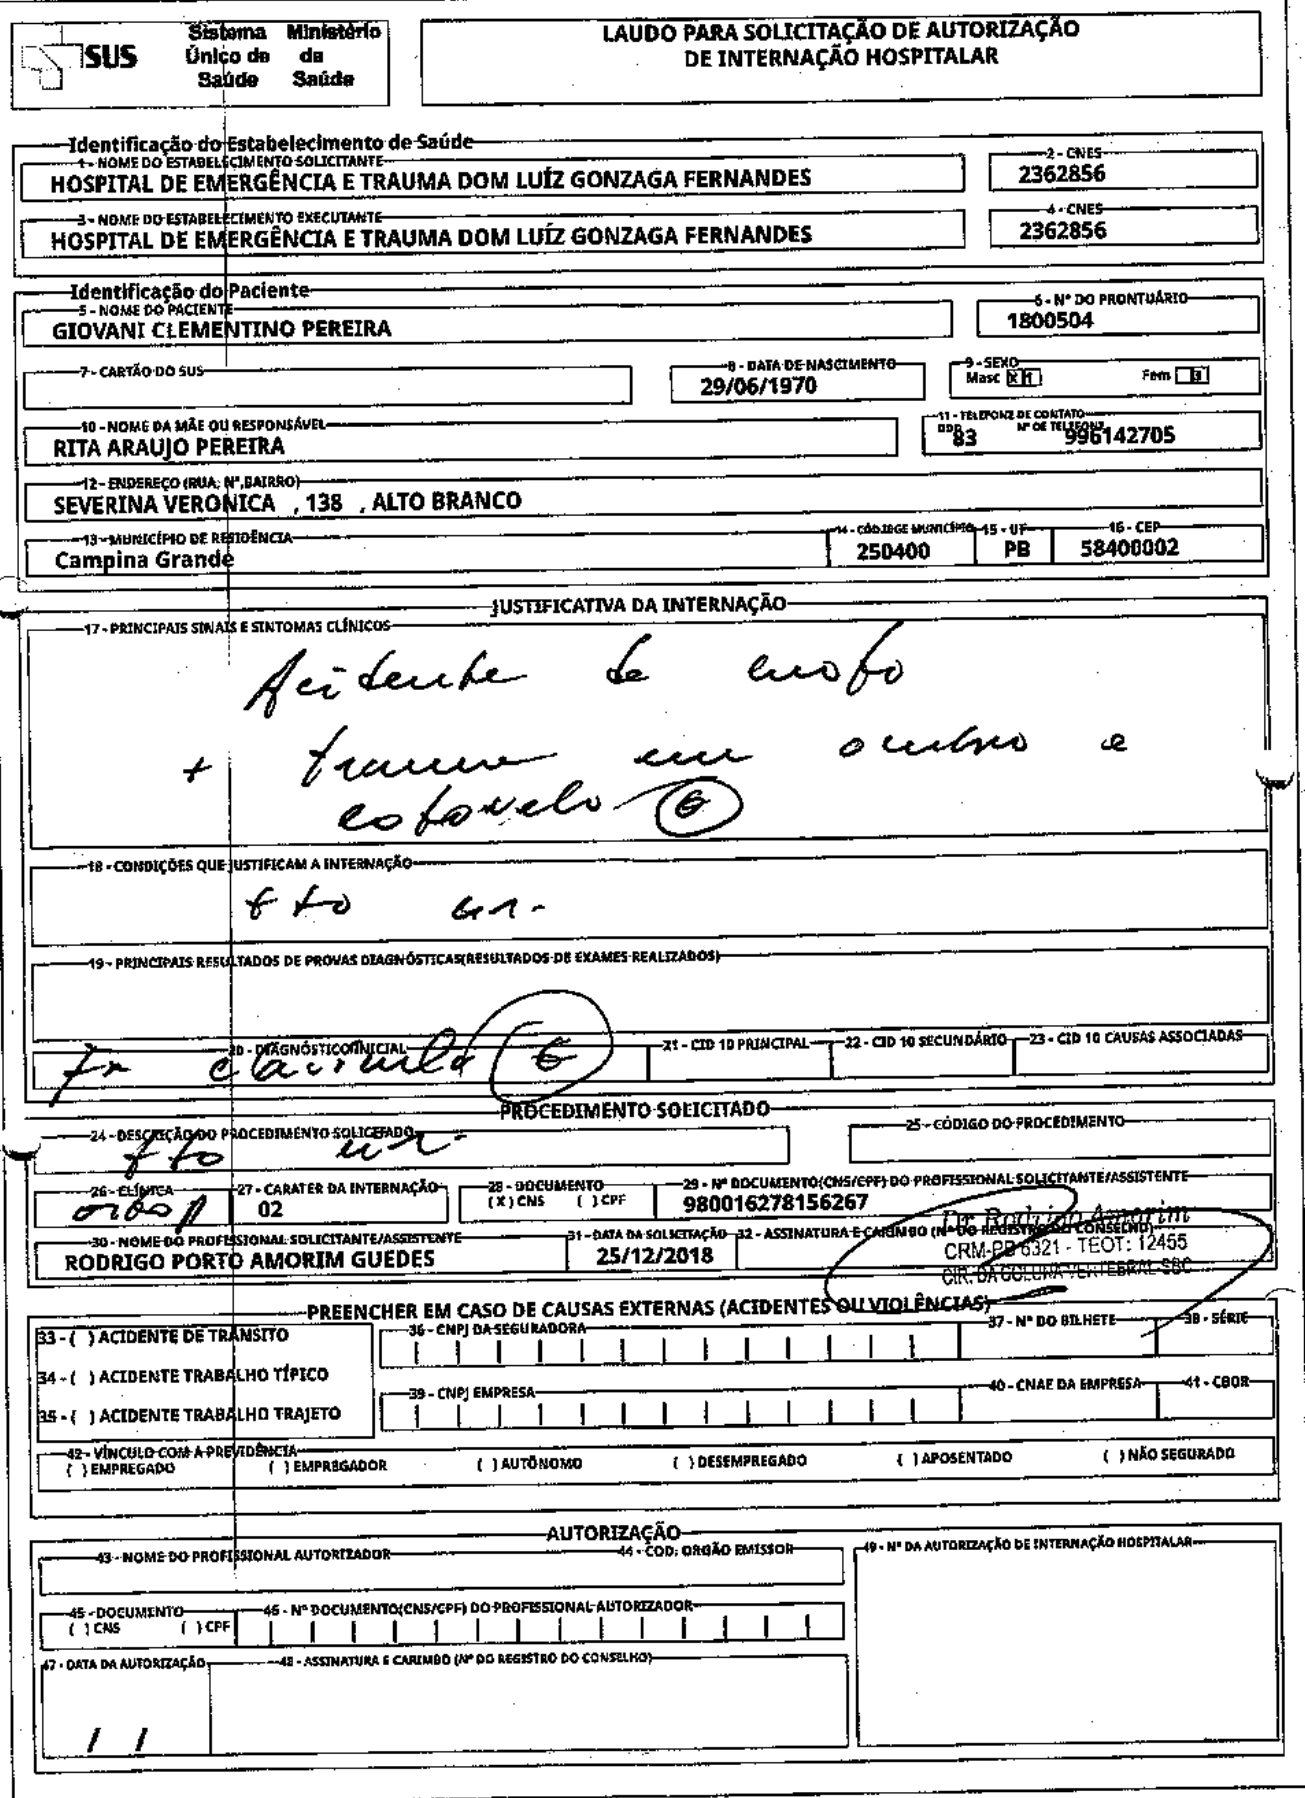 SUS
Sistema Único de Saúde
Ministério da Saúde
LAUDO PARA SOLICITAÇÃO DE AUTORIZAÇÃO
DE INTERNAÇÃO HOSPITALAR
Identificação do Estabelecimento de Saúde
1 - NOME DO ESTABELECIMENTO SOLICITANTE
2 - CNES
HOSPITAL DE EMERGÊNCIA E TRAUMA DOM LUÍZ GONZAGA FERNANDES
2362856
3 - NOME DO ESTABELECIMENTO EXECUTANTE
4 - CNES
HOSPITAL DE EMERGÊNCIA E TRAUMA DOM LUÍZ GONZAGA FERNANDES
2362856
Identificação do Paciente
5 - NOME DO PACIENTE
6 - Nº DO PRONTUÁRIO
GIOVANI CLEMENTINO PEREIRA
1800504
7 - CARTÃO DO SUS
8 - DATA DE NASCIMENTO
9 - SEXO
29/06/1970
Masc X 1 Fem 3
10 - NOME DA MÃE OU RESPONSÁVEL
11 - TELEFONE DE CONTATO
DDD Nº DE TELEFONE
RITA ARAUJO PEREIRA
83 996142705
12 - ENDEREÇO (RUA, Nº, BAIRRO)
SEVERINA VERONICA , 138 , ALTO BRANCO
13 - MUNICÍPIO DE RESIDÊNCIA
14 - CÓD.IBGE MUNICÍPIO
15 - UF
16 - CEP
Campina Grande
250400
PB
58400002
JUSTIFICATIVA DA INTERNAÇÃO
17 - PRINCIPAIS SINAIS E SINTOMAS CLÍNICOS
Acidente de moto
+ trauma em ombro e
cotovelo E
18 - CONDIÇÕES QUE JUSTIFICAM A INTERNAÇÃO
tto
19 - PRINCIPAIS RESULTADOS DE PROVAS DIAGNÓSTICAS(RESULTADOS DE EXAMES REALIZADOS)
20 - DIAGNÓSTICO INICIAL
21 - CID 10 PRINCIPAL
22 - CID 10 SECUNDÁRIO
23 - CID 10 CAUSAS ASSOCIADAS
Fr clavicula E
PROCEDIMENTO SOLICITADO
24 - DESCRIÇÃO DO PROCEDIMENTO SOLICITADO
25 - CÓDIGO DO PROCEDIMENTO
tto
26 - CLÍNICA
27 - CARATER DA INTERNAÇÃO
28 - DOCUMENTO
29 - Nº DOCUMENTO(CNS/CPF) DO PROFISSIONAL SOLICITANTE/ASSISTENTE
02
(X) CNS ( ) CPF
980016278156267
30 - NOME DO PROFISSIONAL SOLICITANTE/ASSISTENTE
31 - DATA DA SOLICITAÇÃO
32 - ASSINATURA E CARIMBO (Nº DO REGISTRO DO CONSELHO)
RODRIGO PORTO AMORIM GUEDES
25/12/2018
Dr. Rodrigo Amorim
CRM-PB 6321 - TEOT: 12455
CIR. DA COLUNA VERTEBRAL-SBC
PREENCHER EM CASO DE CAUSAS EXTERNAS (ACIDENTES OU VIOLÊNCIAS)
33 - ( ) ACIDENTE DE TRÂNSITO
36 - CNPJ DA SEGURADORA
37 - Nº DO BILHETE
38 - SÉRIE
34 - ( ) ACIDENTE TRABALHO TÍPICO
39 - CNPJ EMPRESA
40 - CNAE DA EMPRESA
41 - CBOR
35 - ( ) ACIDENTE TRABALHO TRAJETO
42 - VÍNCULO COM A PREVIDÊNCIA
( ) EMPREGADO ( ) EMPREGADOR ( ) AUTÔNOMO ( ) DESEMPREGADO ( ) APOSENTADO ( ) NÃO SEGURADO
AUTORIZAÇÃO
43 - NOME DO PROFISSIONAL AUTORIZADOR
44 - COD. ORGÃO EMISSOR
49 - Nº DA AUTORIZAÇÃO DE INTERNAÇÃO HOSPITALAR
45 - DOCUMENTO
46 - Nº DOCUMENTO(CNS/CPF) DO PROFISSIONAL AUTORIZADOR
( ) CNS ( ) CPF
47 - DATA DA AUTORIZAÇÃO
48 - ASSINATURA E CARIMBO (Nº DO REGISTRO DO CONSELHO)
/ /